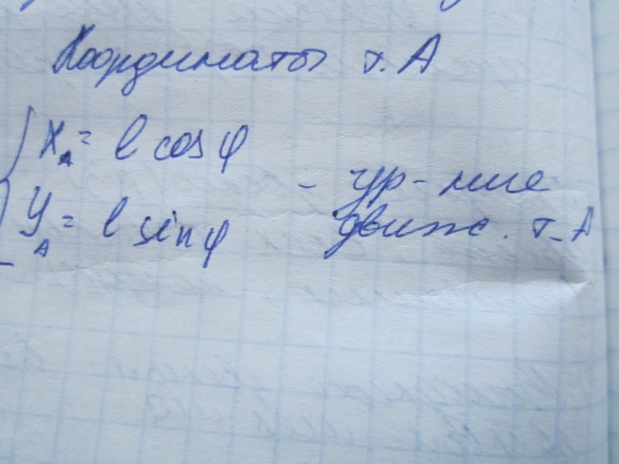 Координаты т. A
x_A = l cos φ
y_A = l sin φ
- ур-ние
движ. т. A